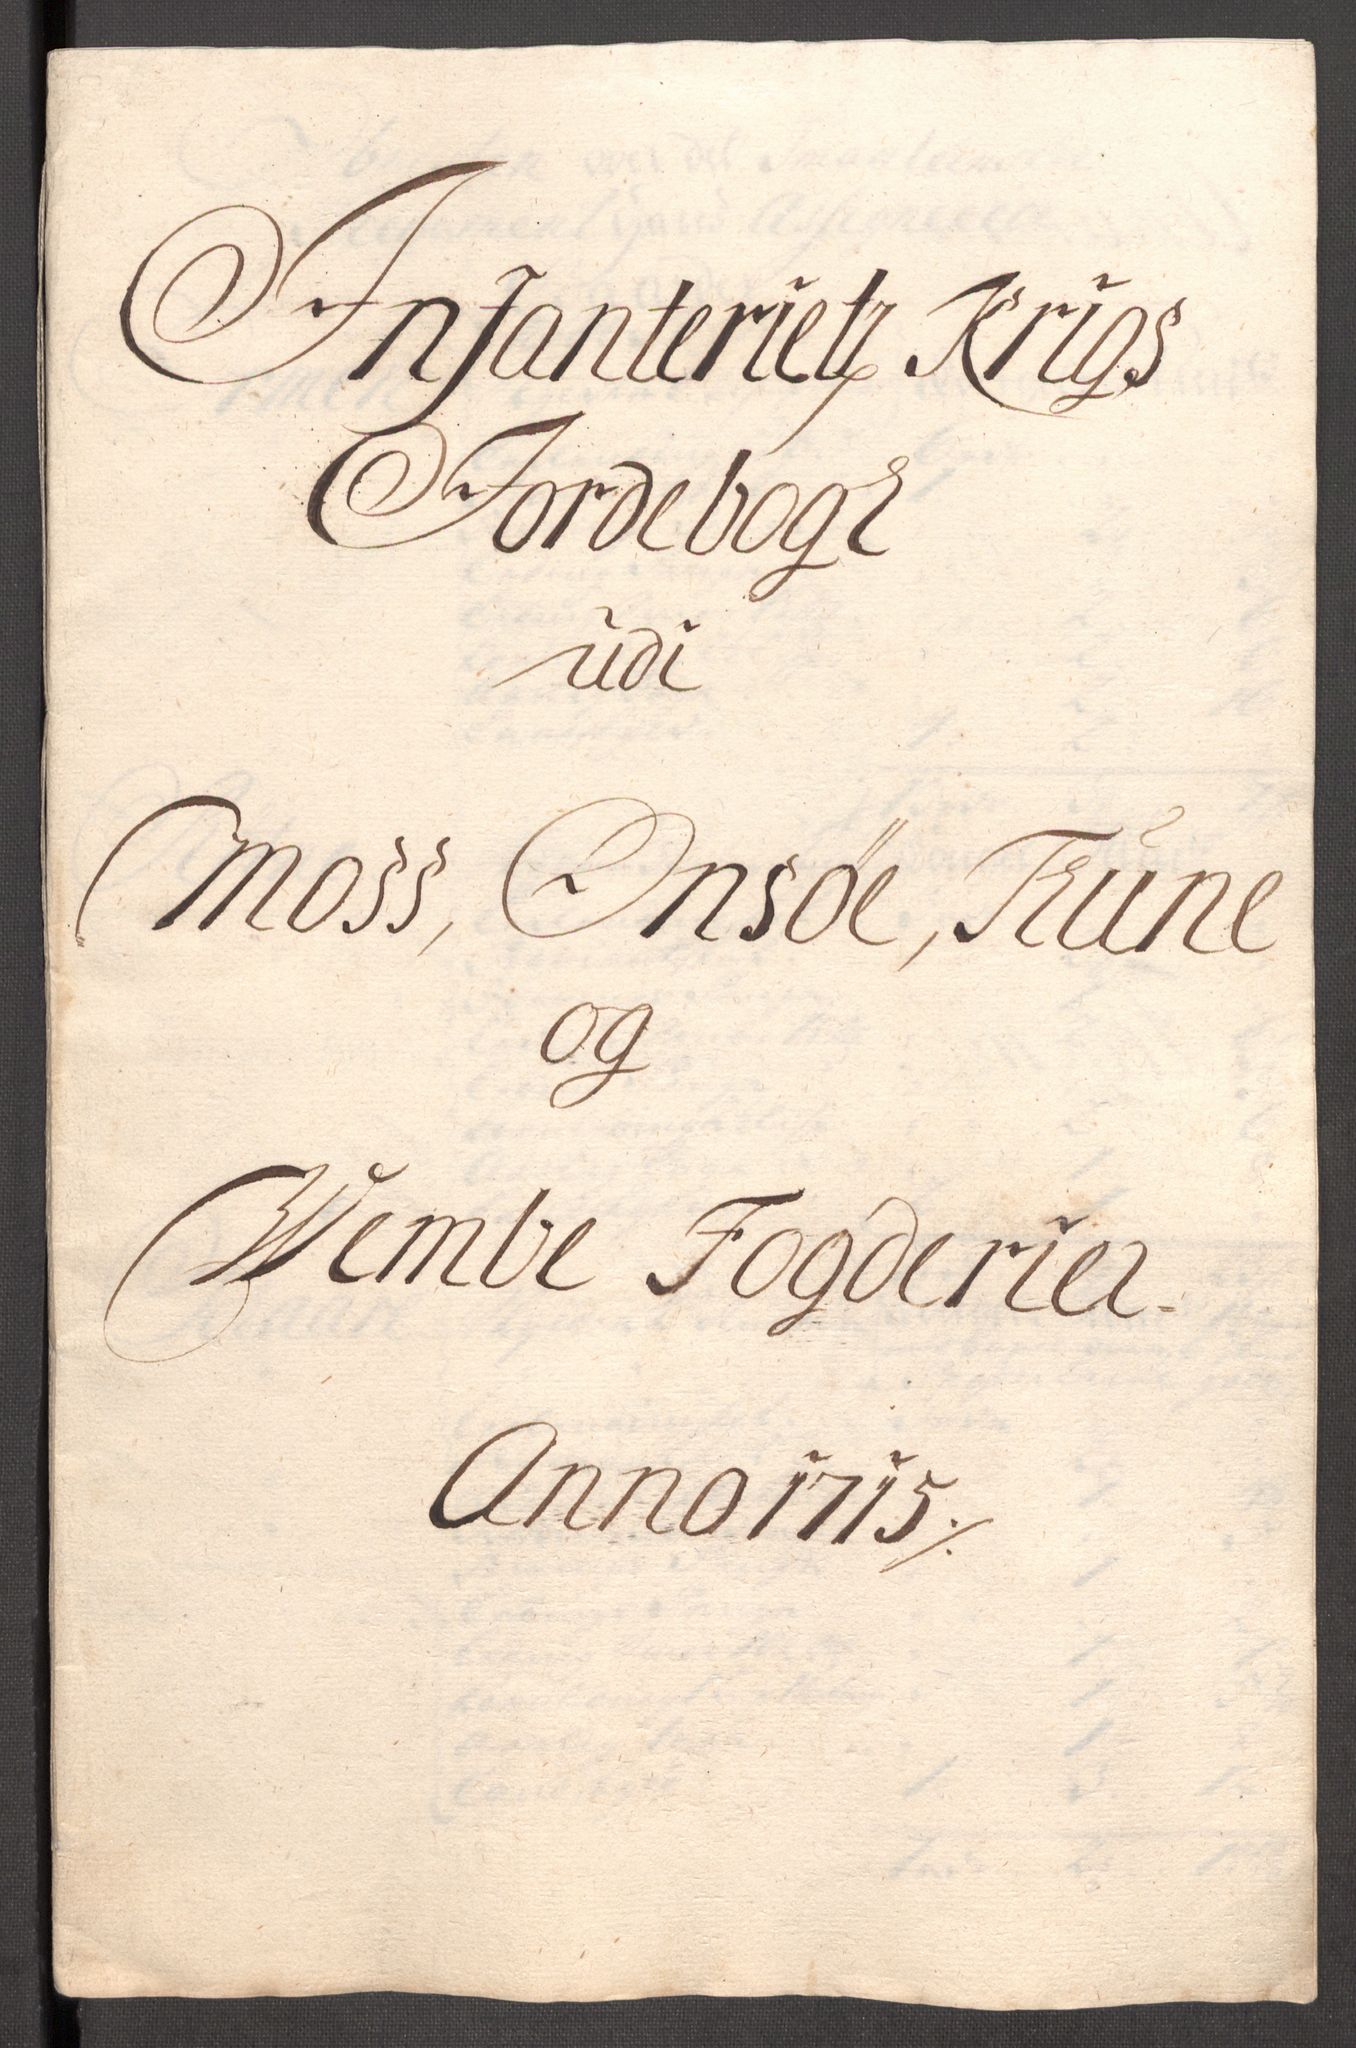 Infanterietz Krigs
Jordebog
udi
Moss, Onsøe, Tune
og
Wembe Fogderier.
Anno 1715 ./.